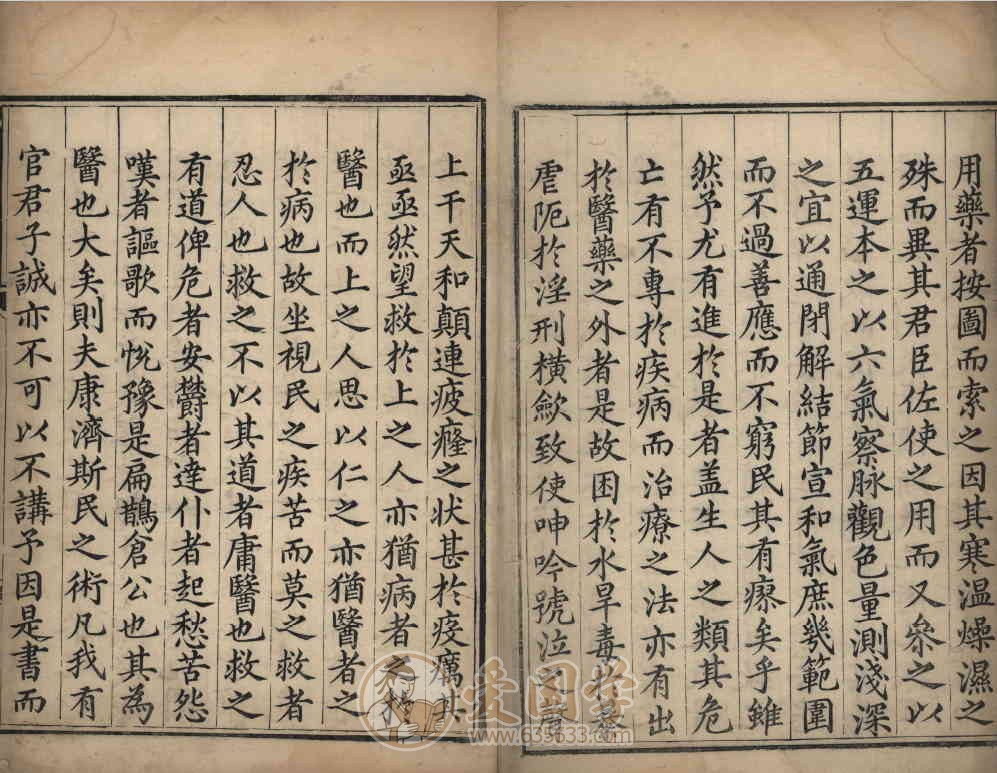 用藥者按圖而索之因其寒温燥濕之
殊而異其君臣佐使之用而又叅之以
五運本之以六氣察脉觀色量測淺深
之宜以通閉解結節宣和氣庶幾範圍
而不過善應而不窮民其有瘳矣乎雖
然予尤有進於是者盖生人之類其危
亡有不專於疾病而治療之法亦有出
於醫藥之外者是故困於水旱毒於暴
虐阨於淫刑横歛致使呻吟號泣之聲
上干天和顛連疲癃之状甚於疫癘其
亟亟然望救於上之人亦猶病者之於
醫也而上之人思以仁之亦猶醫者之
於病也故坐視民之疾苦而莫之救者
忍人也救之不以其道者庸醫也救之
有道俾危者安欝者逹仆者起愁苦怨
嘆者謳歌而恱豫是扁鵲倉公也其為
醫也大矣則夫康濟斯民之術凡我有
官君子誠亦不可以不講予因是書而
爱图学
www.635633.com